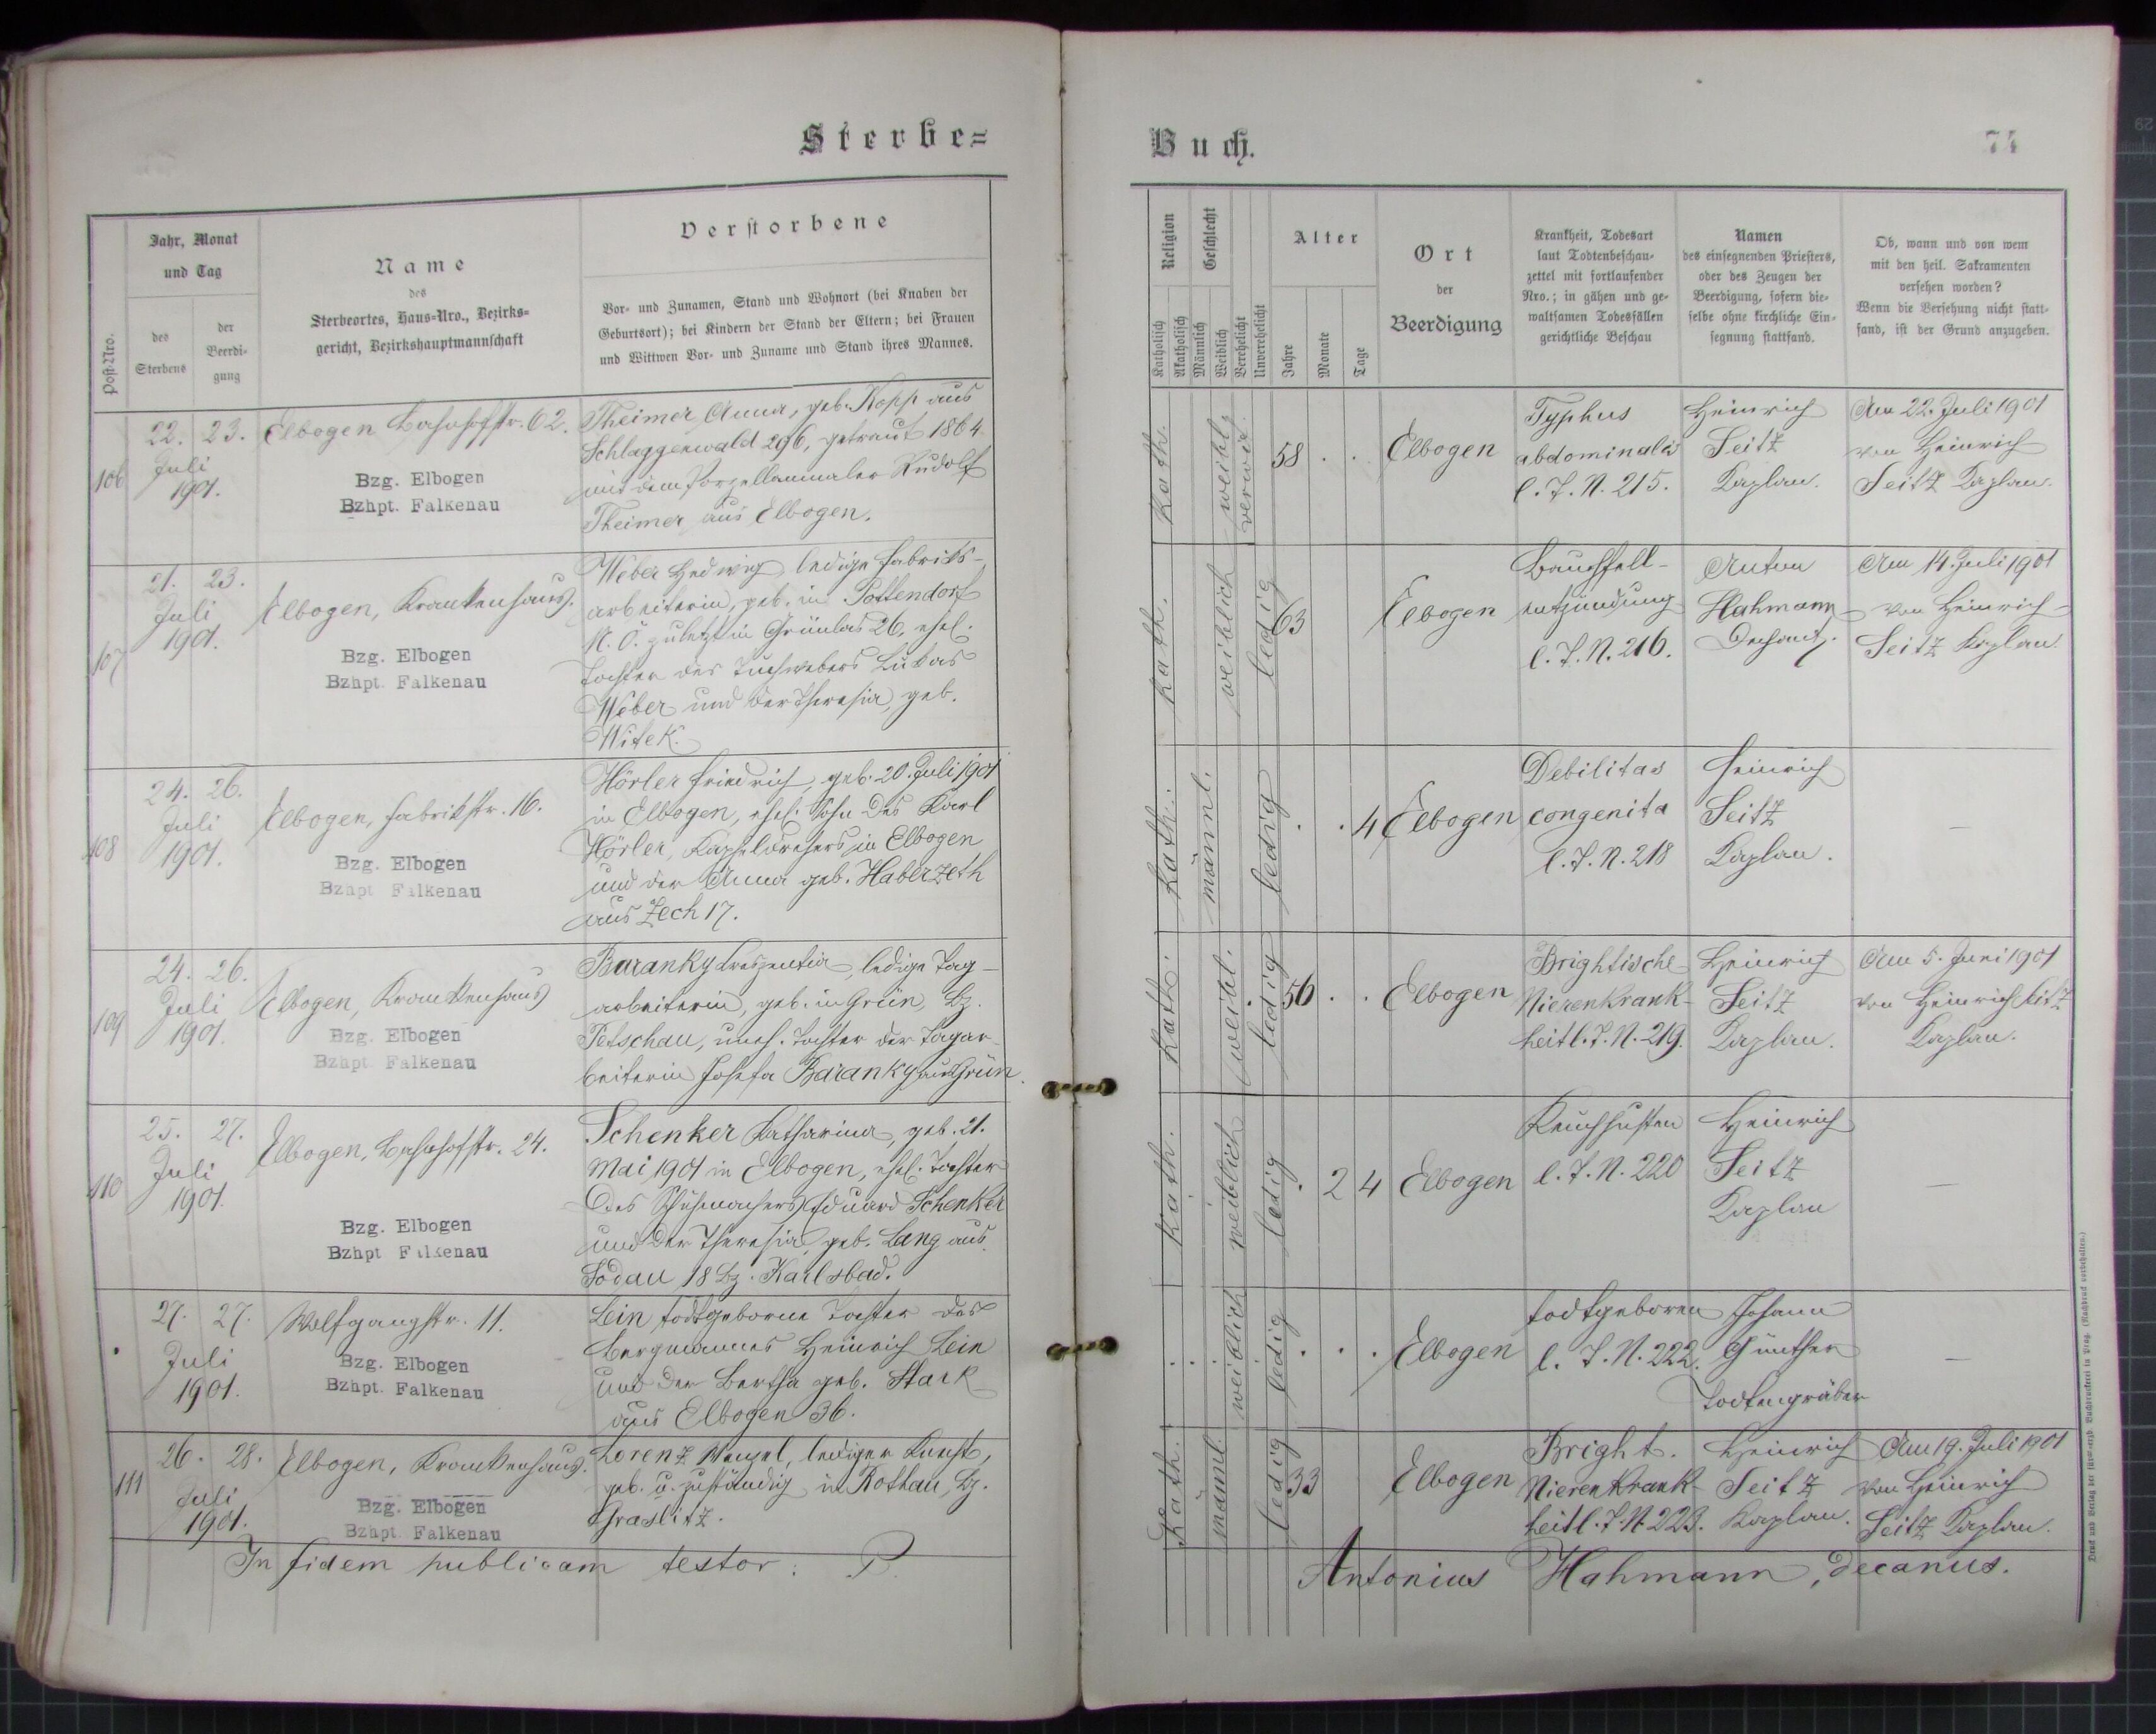 Sterbe=
Buch.
74
Post-Nro.
Jahr, Monat
und Tag
des
Sterbens
der
Beerdi-
gung
Name
des
Sterbeortes, Haus=Nro., Bezirks=
gericht, Bezirkshauptmannschaft
Verstorbene
Vor- und Zunamen, Stand und Wohnort (bei Knaben der
Geburtsort); bei Kindern der Stand der Eltern; bei Frauen
und Wittwen Vor- und Zuname und Stand ihres Mannes.
Religion
Katholisch
Akatholisch
Geschlecht
Männlich
Weiblich
Verehelicht
Unverehelicht
Alter
Jahre
Monate
Tage
Ort
der
Beerdigung
Krankheit, Todesart
laut Todtenbeschau-
zettel mit fortlaufender
Nro.; in gähen und ge-
waltsamen Todesfällen
gerichtliche Beschau
Namen
des einsegnenden Priesters,
oder des Zeugen der
Beerdigung, sofern die-
selbe ohne kirchliche Ein-
segnung stattfand.
Ob, wann und von wem
mit den heil. Sakramenten
versehen worden?
Wenn die Versehung nicht statt-
fand, ist der Grund anzugeben.
106
22. 23.
Juli
1901.
Elbogen Bahnhofstr. 62.
Bzg. Elbogen
Bzhpt. Falkenau
Theimer Anna, geb. Kopp aus
Schlaggenwald 296, getraut 1864
mit dem Porzellanmaler Rudolf
Theimer aus Elbogen.
Kath.
weibl.
verwit.
58 . .
Elbogen
Typhus
abdominalis
l. T. N. 215.
Heinrich
Seitz
Kaplan.
Am 22. Juli 1901
von Heinrich
Seitz Kaplan.
107
21. 23.
Juli
1901.
Elbogen, Krankenhaus.
Bzg. Elbogen
Bzhpt. Falkenau
Weber Hedwig, ledige Fabriks-
arbeiterin, geb. in Pottendorf
N. Ö. zuletzt in Grünlas 26, ehel.
Tochter des Tuchwebers Lukas
Weber und der Theresia, geb.
Witek.
Kath.
weiblich
ledig
63
Elbogen
Bauchfell-
entzündung
l. T. N. 216.
Anton
Hahmann
Dechant.
Am 14. Juli 1901
von Heinrich
Seitz Kaplan.
108
24. 26.
Juli
1901.
Elbogen, Fabrikstr. 16.
Bzg. Elbogen
Bzhpt Falkenau
Hörler Friedrich, geb. 20. Juli 1901
in Elbogen, ehel. Sohn des Karl
Hörler, Kapseldrehers in Elbogen
und der Anna geb. Haberzeth
aus Zech 17.
Kath.
männl.
ledig
. . 4
Elbogen
Debilitas
congenita
l. T. N. 218
Heinrich
Seitz
Kaplan.
—
109
24. 26.
Juli
1901.
Elbogen, Krankenhaus
Bzg. Elbogen
Bzhpt Falkenau
Baranky Kreszentia, ledige Tag-
arbeiterin, geb. in Grün, Bz.
Petschau, uneh. Tochter der Tagar-
beiterin Josefa Baranky aus Grün.
Kath.
weibl.
ledig
56 . .
Elbogen
Brightische
Nierenkrank-
heit l. T. N. 219.
Heinrich
Seitz
Kaplan.
Am 5. Juni 1901
von Heinrich Seitz
Kaplan.
110
25. 27.
Juli
1901.
Elbogen, Bahnhofstr. 24.
Bzg. Elbogen
Bzhpt Falkenau
Schenker Katharina, geb. 21.
Mai 1901 in Elbogen, ehel. Tochter
des Schuhmachers Eduard Schenker
und der Theresia, geb. Lang aus
Sodau 18 Bz. Karlsbad.
Kath.
weiblich
ledig
. 2 4
Elbogen
Keuchhusten
l. T. N. 220
Heinrich
Seitz
Kaplan
—
27. 27.
Juli
1901.
Wolfgangstr. 11.
Bzg. Elbogen
Bzhpt. Falkenau
Lein todtgeborne Tochter des
Bergmannes Heinrich Lein
und der Bertha geb. Stark
aus Elbogen 36.
weiblich
ledig
. . .
Elbogen
todtgeboren
l. T. N. 222.
Johann
Günther
Todtengräber
—
111
26. 28.
Juli
1901.
Elbogen, Krankenhaus.
Bzg. Elbogen
Bzhpt. Falkenau
Lorenz Wenzel, lediger Knecht,
geb. u. zuständig in Rothau, Bz.
Graslitz.
Kath.
männl.
ledig
33
Elbogen
Bright.
Nierenkrank-
heit l. T. N. 223.
Heinrich
Seitz
Kaplan.
Am 19. Juli 1901
von Heinrich
Seitz Kaplan.
In fidem publicam testor: P.
Antonius Hahmann, decanus.
Druck und Verlag der fürst-erzb. Buchdruckerei in Prag. (Nachdruck vorbehalten.)